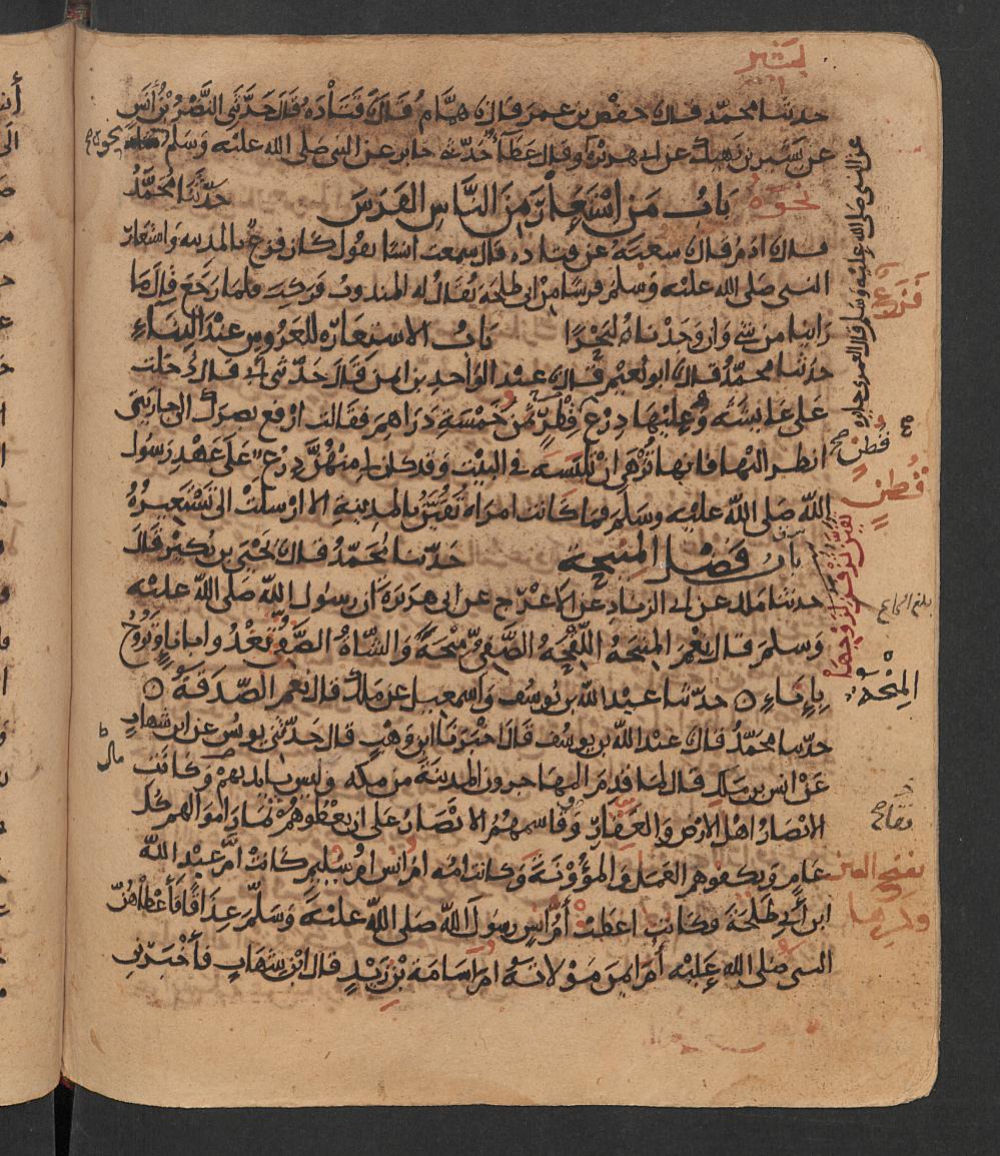 بشير
حدثنا محمد قال نا حفص بن عمر قال نا همام قال نا قتادة قال حدثني النضر بن أنس
عن بشير بن نهيك عن ابي هريرة وقال عطاء حدثني جابر عن النبي صلى الله عليه وسلم نحوه
نحوه باب من استعار من الناس الفرس حدثنا محمد
قال نا ادم قال نا شعبة عن قتادة قال سمعت انسا يقول كان فزع بالمدينة واستعار
النبي صلى الله عليه وسلم فرسا من ابي طلحة يقال له المندوب فركب فلما رجع قال ما
راينا من شي وان وجدناه لبحرا باب الاستعارة للعروس عند البناء
حدثنا محمد قال نا ابو نعيم قال نا عبد الواحد بن ايمن قال حدثني ابي قال دخلت
على عايشة وعليها درع قطر ثمن خمسة دراهم فقالت ارفع بصرك الى جاريتي
انظر اليها فانها تزهى ان تلبسه في البيت وقد كان لي منهن درع على عهد رسول
الله صلى الله عليه وسلم فما كانت امراة تقين بالمدينة الا ارسلت الي تستعيره
باب فضل المنيحة حدثنا محمد قال نا يحيى بن بكير قال
حدثنا مالك عن ابي الزناد عن الاعرج عن ابي هريرة ان رسول الله صلى الله عليه
وسلم قال نعم المنيحة اللقحة الصفي منحة والشاة الصفي تغدو باناء وتروح
باناء حدثنا عبد الله بن يوسف واسمعيل عن مالك قال نعم الصدقة
حدثنا محمد قال نا عبد الله بن يوسف قال اخبرنا ابن وهب قال حدثني يونس عن ابن شهاب
عن انس بن ملك قال لما قدم المهاجرون المدينة من مكة وليس بايديهم وكانت
الانصار اهل الارض والعقار وقاسمهم الانصار على ان يعطوهم ثمار اموالهم كل
عام ويكفوهم العمل والمؤونة وكانت امه ام انس ام سليم كانت ام عبد الله
ابن أبي طلحة فكانت اعطت أم انس رسول الله صلى الله عليه وسلم عذاقا فأعطاهن
النبي صلى الله عليه أم ايمن مولاته ام اسامة بن زيد قال ابن شهاب فأخبرني
عن النبي صلى الله عليه وسلم قال العمرى جايزة
فزع
قطن صح
قطن
المنحة
بفتح العين